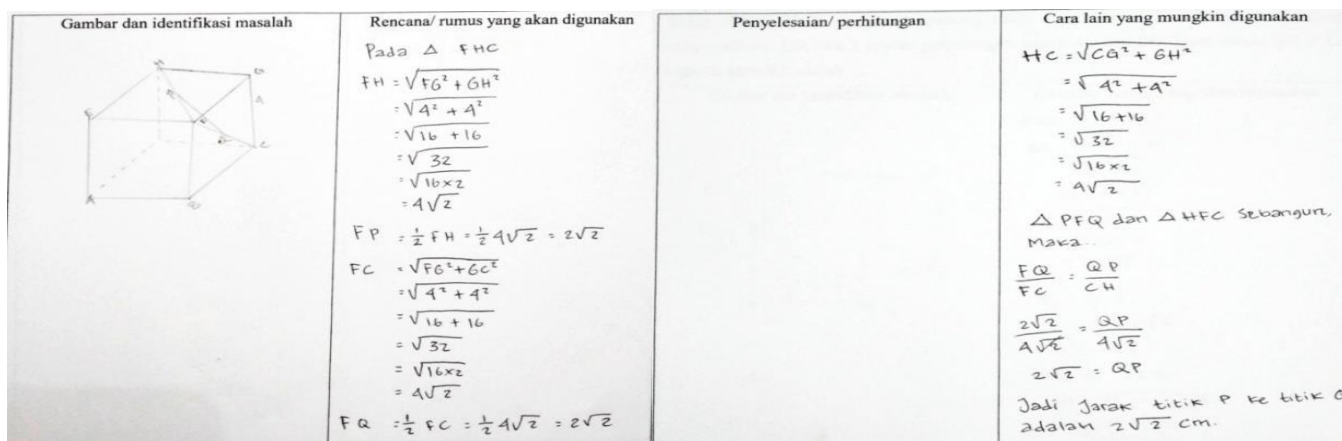 Gambar dan identifikasi masalah
H
G
E
4
C
A
Rencana/ rumus yang akan digunakan
Pada △ FHC
FH = √FG² + GH²
= √4² + 4²
= √16 + 16
= √32
= √16×2
= 4√2
FP = ½ FH = ½ 4√2 = 2√2
FC = √FG² + GC²
= √4² + 4²
= √16 + 16
= √32
= √16×2
= 4√2
FQ = ½ FC = ½ 4√2 = 2√2
Penyelesaian/ perhitungan
Cara lain yang mungkin digunakan
HC = √CG² + GH²
= √4² + 4²
= √16 + 16
= √32
= √16×2
= 4√2
△ PFQ dan △ HFC Sebangun,
Maka..
FQ/FC = QP/CH
2√2/4√2 = QP/4√2
2√2 = QP
Jadi Jarak titik P ke titik Q
adalah 2√2 cm.